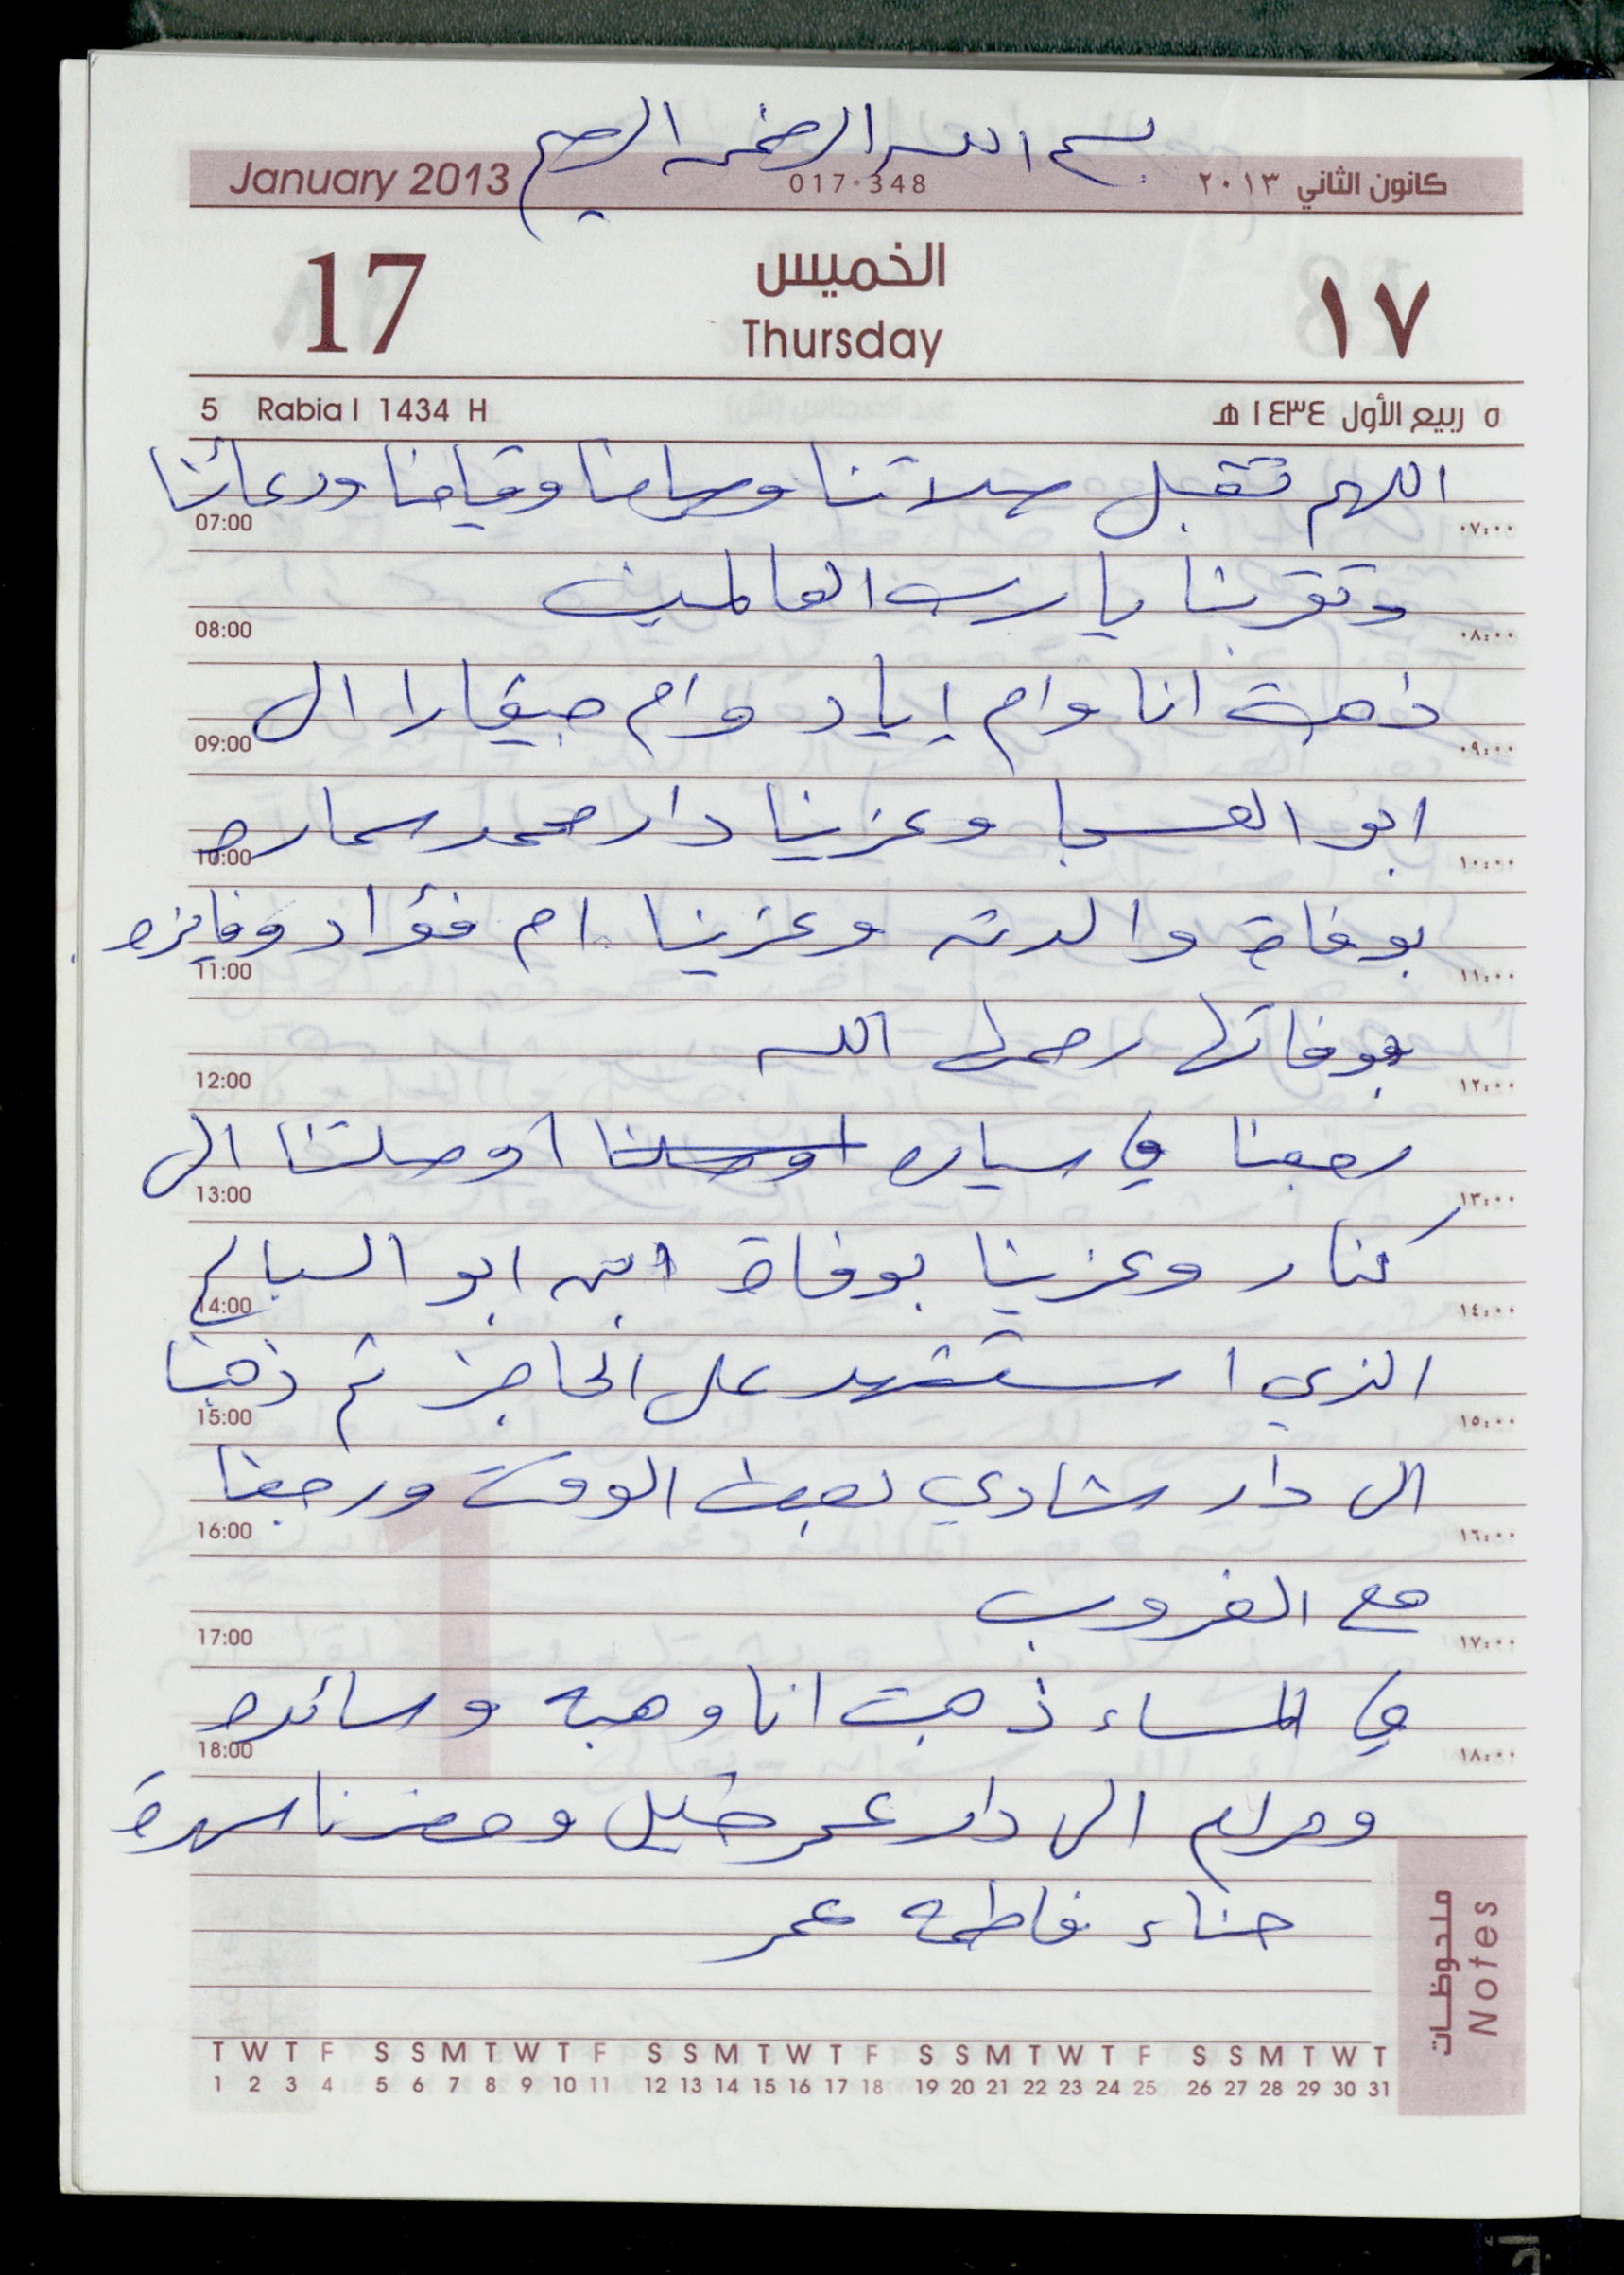 بسم الله الرحمن الرحيم
January 2013 017-348 كانون الثاني ٢٠١٣
17 الخميس ١٧
Thursday
5 Rabia I 1434 H ٥ ربيع الأول ١٤٣٤ هـ
اللهم تقبل صلاتنا وصيامنا وقيامنا ودعائنا
07:00 ٠٧:٠٠
وتقربنا يا رب العالمين
08:00 ٠٨:٠٠
ذهبت انا وام إياد وام جيفارا الى
09:00 ٠٩:٠٠
ابو العسجا وعزينا دار محمد سماره
10:00 ١٠:٠٠
بوفاة والدته وعزينا ام فؤاد وفايزه
11:00 ١١:٠٠
بوفاتها رحمها الله
12:00 ١٢:٠٠
رجعنا في سياره اوصلنا أوصلتنا الى
13:00 ١٣:٠٠
كنار وعزينا بوفاة ابن ابو السباع
14:00 ١٤:٠٠
الذي استشهد على الحاجز ثم ذهبنا
15:00 ١٥:٠٠
الى دار شادي لبعض الوقت ورجعنا
16:00 ١٦:٠٠
مع الغروب
17:00 ١٧:٠٠
في المساء ذهبت انا وهبه وسائده
18:00 ١٨:٠٠
ومرام الى دار عمر خليل وحضرنا سهرة
حناء فاطمه عمر
ملحوظات Notes
T W T F S S M T W T F S S M T W T F S S M T W T F S S M T W T
1 2 3 4 5 6 7 8 9 10 11 12 13 14 15 16 17 18 19 20 21 22 23 24 25 26 27 28 29 30 31